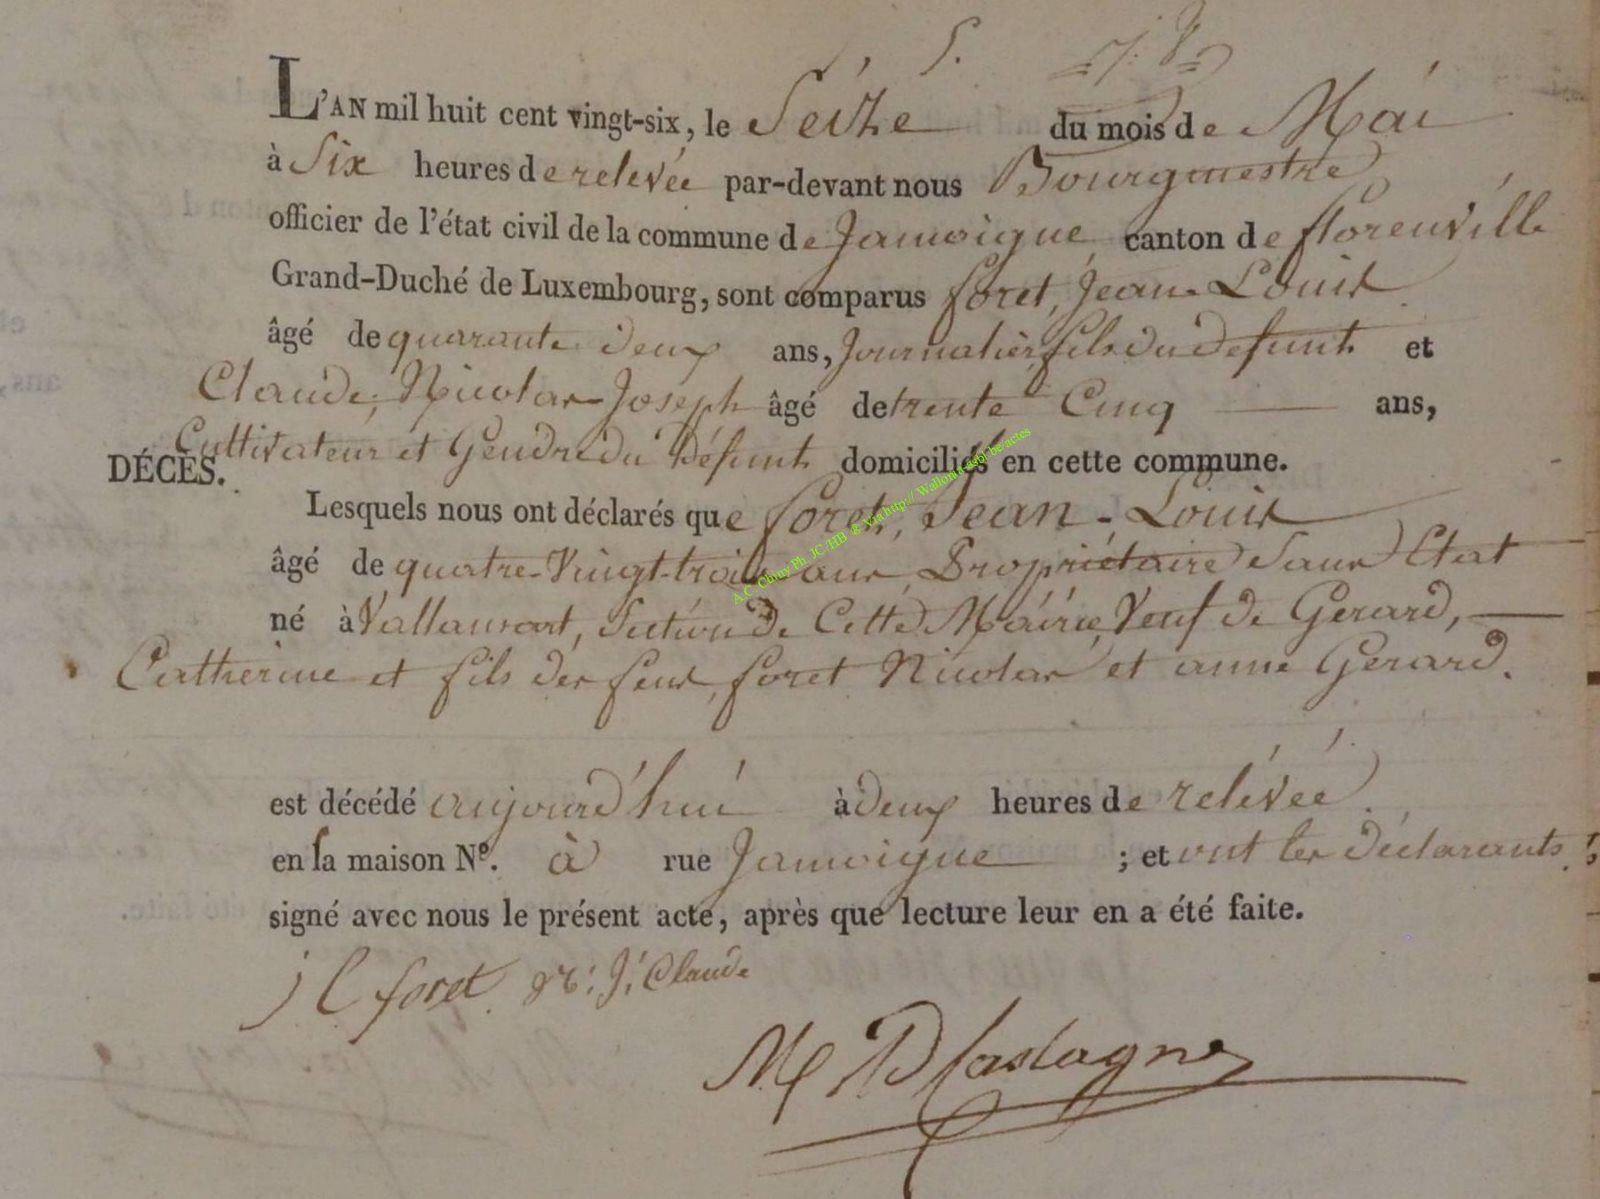 L'AN mil huit cent vingt-six, le Seize du mois de Mai
à Six heures de relevée par-devant nous Bourgmestre
officier de l'état civil de la commune de Jamoigne canton de florenville
Grand-Duché de Luxembourg, sont comparus foret, Jean-Louis
âgé de quarante deux ans, Journalier, fils du defunt et
Claude, Nicolas-Joseph âgé de trente Cinq ans,
Cultivateur et Gendre du Défunt domiciliés en cette commune.
DÉCÈS.
Lesquels nous ont déclarés que foret, Jean-Louis
âgé de quatre-Vingt-trois ans Propriétaire Sans Etat
né à Vallansart, Section de Cette Mairie, Veuf de Gerard,
Catherine et fils des feus, foret Nicolas et anne Gerard.
est décédé aujourd'hui à deux heures de relévée
en la maison N°. à rue Jamoigne ; et ont les déclarants
signé avec nous le présent acte, après que lecture leur en a été faite.
j l foret N: J: Claude
A.C. Chiny Ph JC/HB & via http:// Wallonia-asbl be/actes